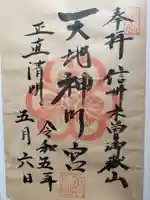 奉拝 信州木曽御嶽山
天地神明宮
正直清明 令和五年
五月六日